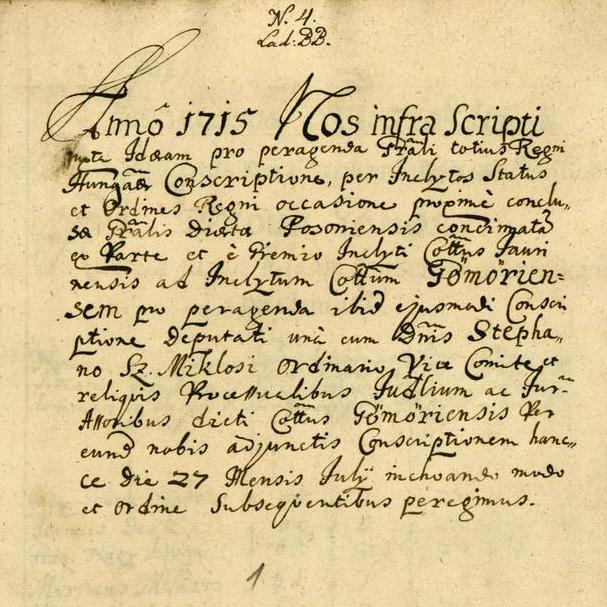 N. 4.
Lad: BB.
Anno 1715 Nos infra Scripti
juxta Ideam pro peragenda Grali totius Regni
Hungariae Conscriptione, per Inclytos Status
et Ordines Regni occasione proxime conclu„
sae Gralis Diaetae Posoniensis concinnatã
ex Parte et è Gremio Inclyti Cottus Jauri
nensis ad Inclytum Cottum Gömörien=
sem pro peragenda ibid ejusmodi Conscri
ptione deputati unà cum Dnis Stepha„
no Sz. Miklosi ordinario Vice Comite et
reliquis Processualibus Judlium ac Jur„
Assoribus dicti Cottus Gömöriensis Per
eund nobis adjunctis Conscriptionem hanc„
ce die 27 Mensis Julÿ inchoando modo
et ordine Subseqventibus peregimus.
1